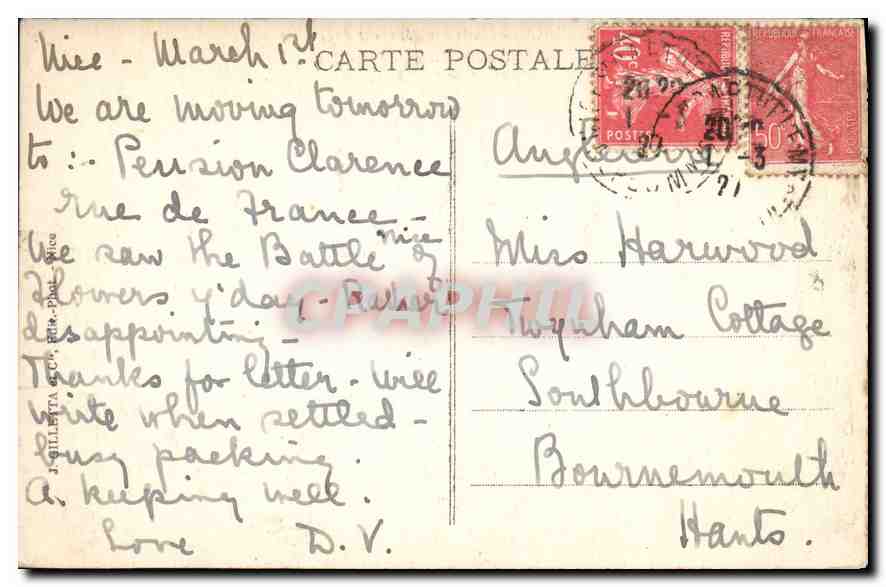 Nice - March 1st
CARTE POSTALE
We are moving tomorrow
to :- Pension Clarence
rue de France -
Nice
We saw the Battle of
Flowers y'day - Rather
disappointing -
Thanks for letter - Will
write when settled -
busy packing.
A. keeping well.
Love D.V.
J. GILLETTA et Cie, Edit.-Phot. - Nice
Angleterre
Miss Harwood
Twynham Cottage
Southbourne
Bournemouth
Hants.
40c
REPUBLIQUE
POSTES
REPUBLIQUE FRANCAISE
50c
POSTES
20
1 - 3
27
CPAPHIL